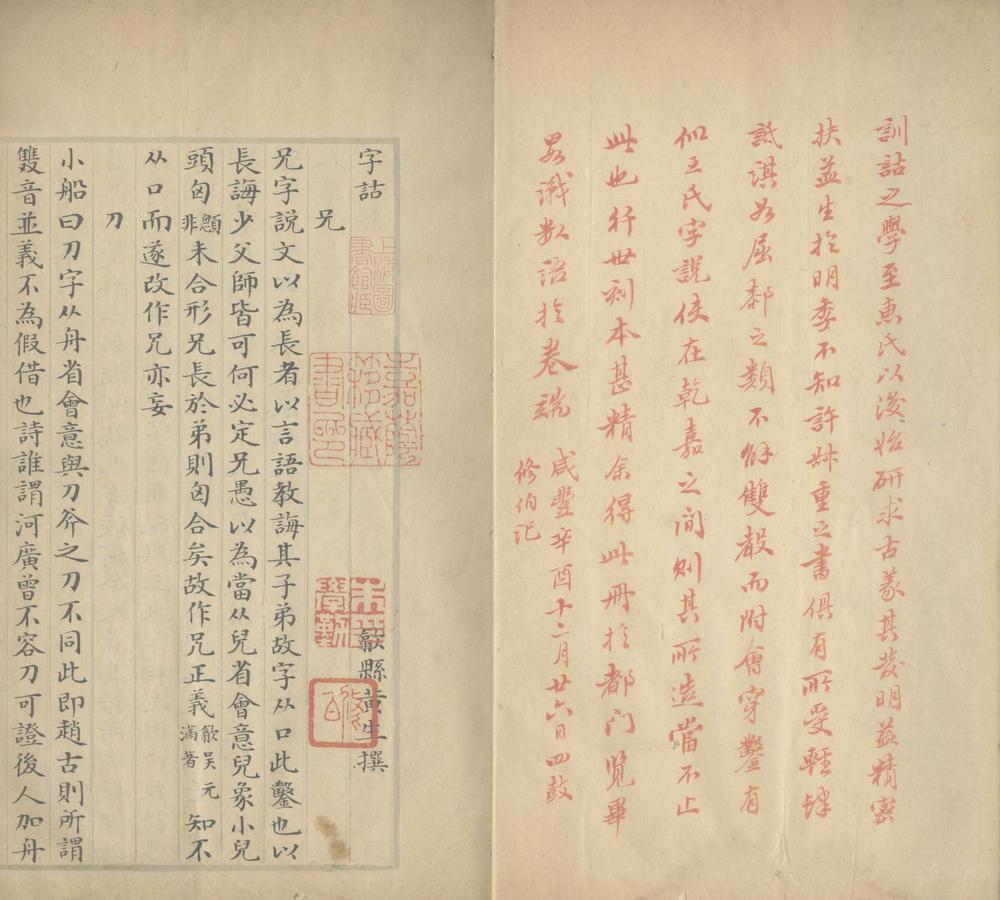 訓詁之學至惠氏以後始研求古義其發明益精密
扶益生於明季不知許叔重之書俱有所受輕肆
詆淇如屈都之類不解雙聲而附會穿鑿有
似王氏字說使在乾嘉之間則其所造當不止
此也行世刻本甚精余得此冊於都门覽畢
畧識數語於卷端 咸豐辛酉十二月廿六日四鼓
修伯記
字詁 歙縣黄生撰
兄
兄字説文以為長者以言語教誨其子弟故字从口此鑿也以
長誨少父師皆可何必定兄愚以為當从兒省會意兒象小兒
頭囟顋非未合形兄長於弟則囟合矣故作兄正義歙吴元滿著知不
从口而遂改作兄亦妄
刀
小船曰刀字从舟省會意與刀斧之刀不同此即趙古則所謂
雙音並義不為假借也詩誰謂河廣曾不容刀可證後人加舟
上海圖書館藏
嘉蔭簃藏書印
朱學勤
修伯